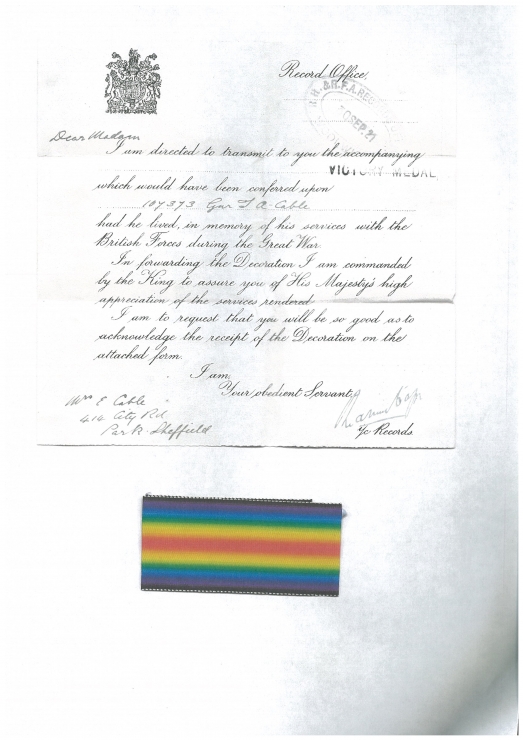 Record Office,
R.H. & R.F.A. REC
SEP. 21
Dear Madam
I am directed to transmit to you the accompanying
VICTORY MEDAL
which would have been conferred upon
107373 Gnr A. Cable
had he lived, in memory of his services with the
British Forces during the Great War.
In forwarding the Decoration I am commanded
by the King to assure you of His Majesty's high
appreciation of the services rendered.
I am to request that you will be so good as to
acknowledge the receipt of the Decoration on the
attached form.
I am,
Your obedient Servant,
Mrs E Cable
414 City Rd
Park Sheffield
I/c Records.